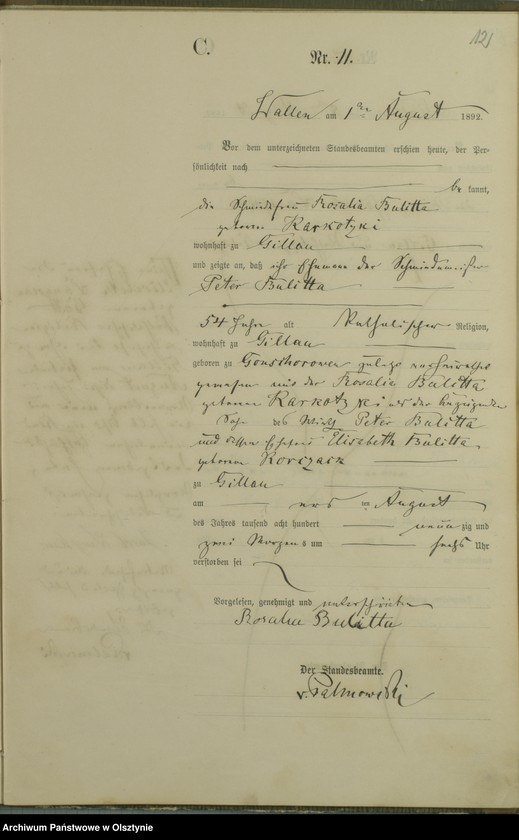 C.
121
Nr. 11.
Wallen am 1ten August 1892.
Vor dem unterzeichneten Standesbeamten erschien heute, der Per-
sönlichkeit nach
be kannt,
die Schmiedefrau Rosalia Bulitta
geborene Karkotzki
wohnhaft zu Gillau
und zeigte an, daß ihr Ehemann der Schmiedemeister
Peter Bulitta
54 Jahre alt Katholischer Religion,
wohnhaft zu Gillau
geboren zu zuletzt verheirathet
gewesen mit der Rosalia Bulitta
geborenen Karkotzki
Sohn des Peter Bulitta
und dessen Ehefrau Elisabeth Bulitta
geborene Korczack
zu Gillau
am ersten August
des Jahres tausend acht hundert neun zig und
zwei Morgens um sechs Uhr
verstorben sei
Vorgelesen, genehmigt und unterschrieben
Rosalia Bulitta
Der Standesbeamte.
v. Palmowski
Archiwum Państwowe w Olsztynie